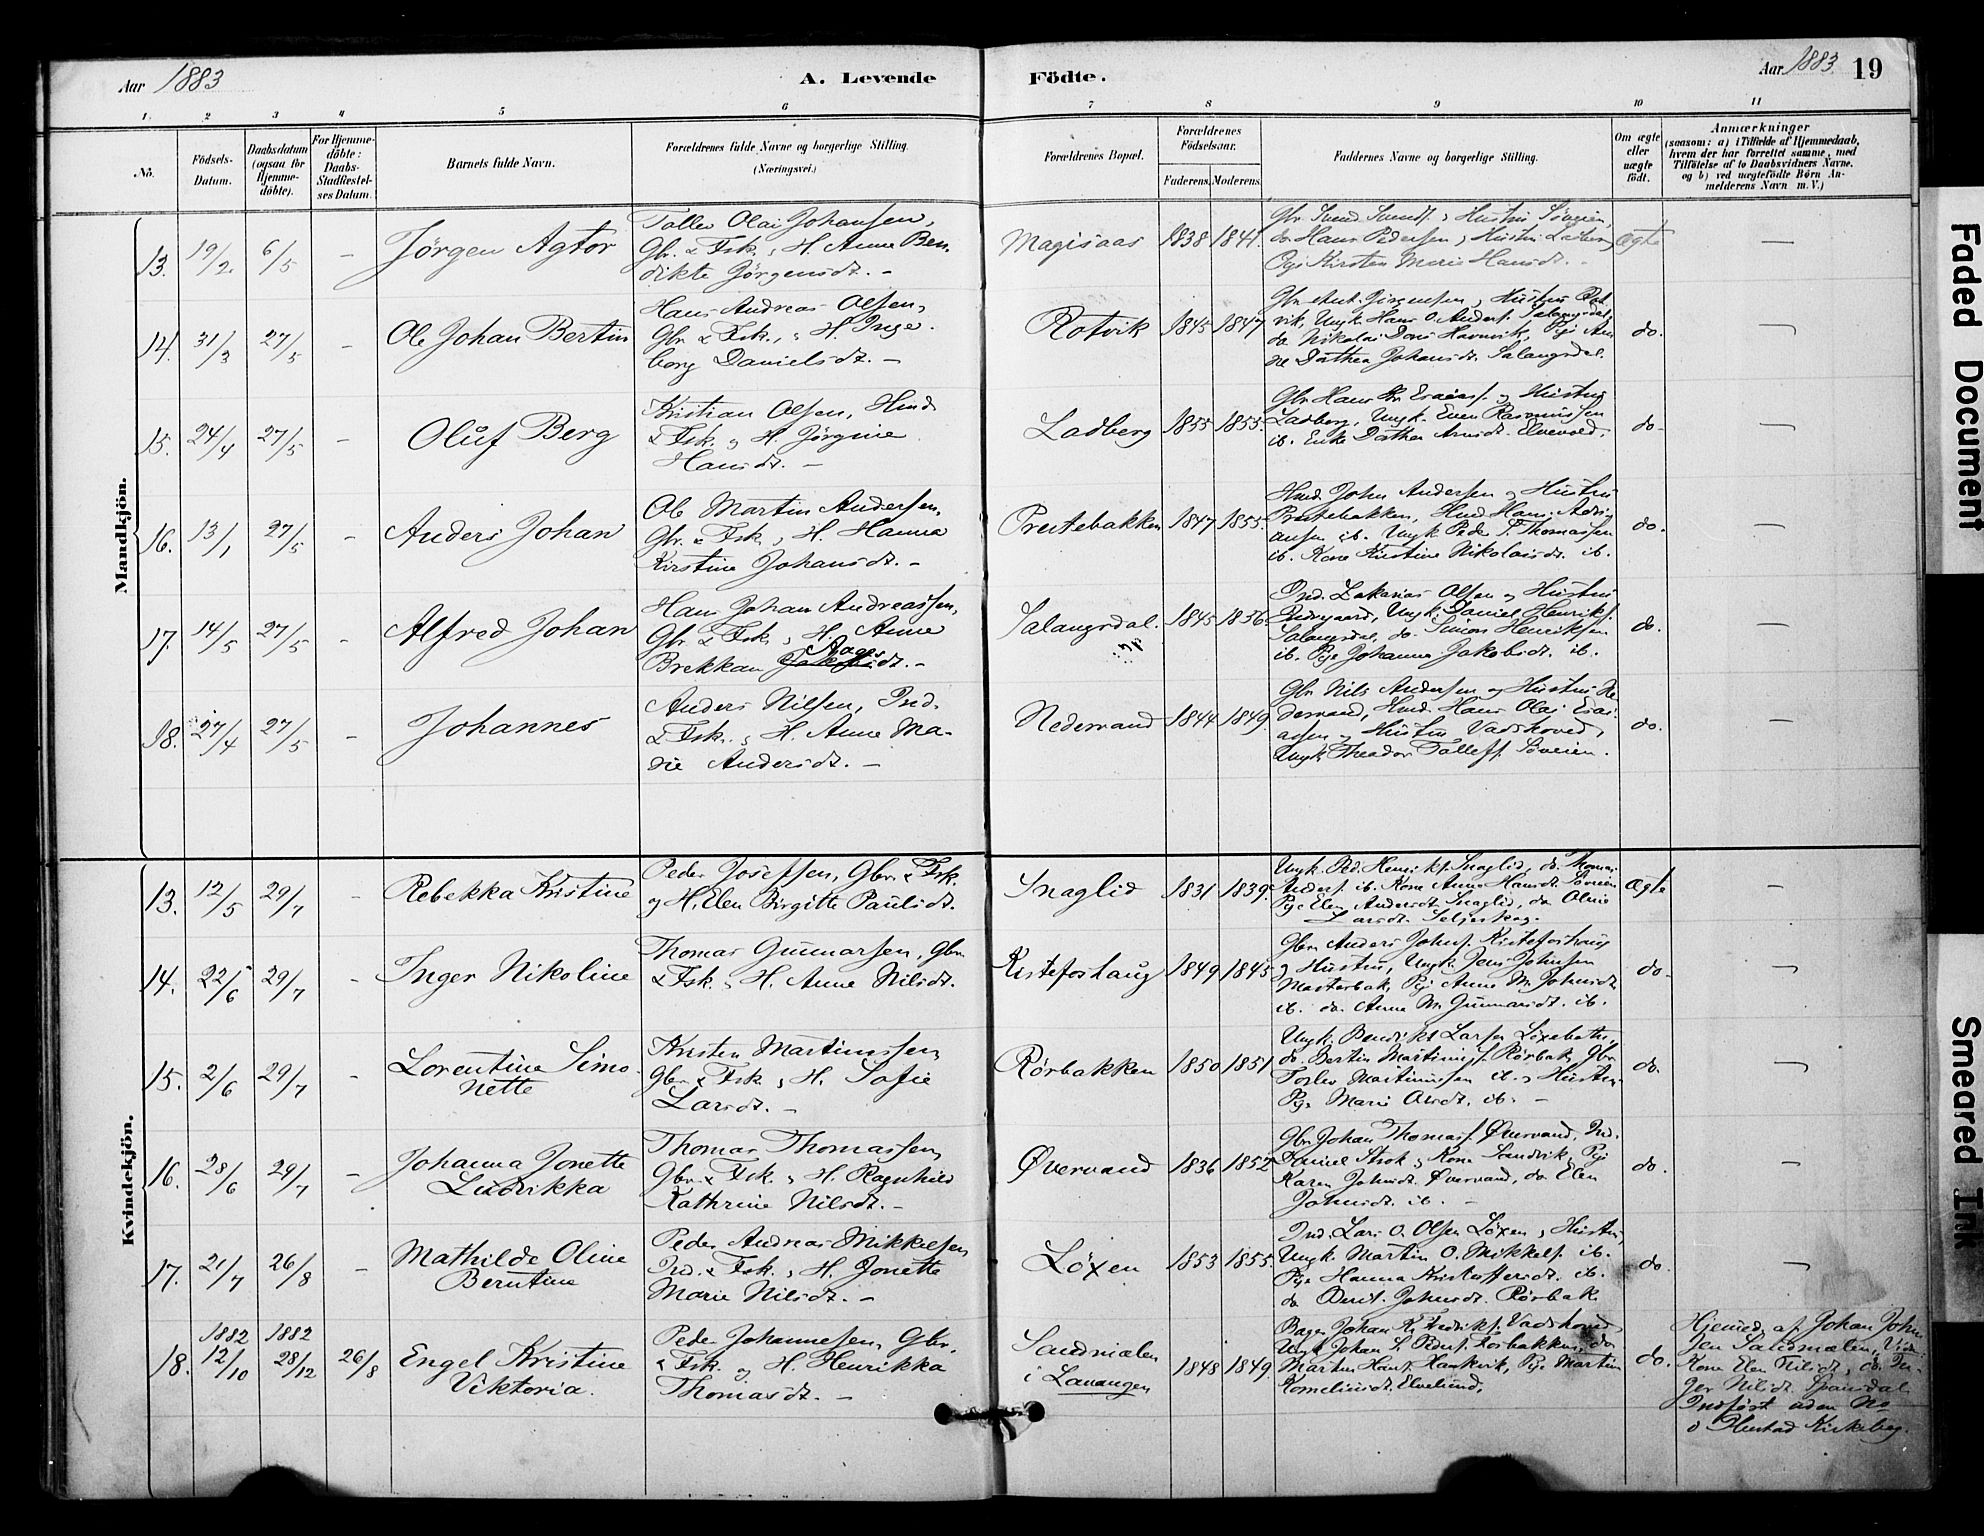 Aar 1883
A. Levende
Födte.
Aar 1883 19
1. 2 3 4 5 6 7 8 9 10 11
No.
Födsels-
Datum.
Daabsdatum
(ogsaa for
Hjemme-
döbte).
For Hjemme-
döbte:
Daabs-
Stadfæstel-
ses Datum.
Barnets fulde Navn.
Forældrenes fulde Navne og borgerlige Stilling.
(Næringsvei.)
Forældrenes Bopæl.
Forældrenes
Födselsaar.
Faderens. Moderens.
Faddernes Navne og borgerlige Stilling.
Om ægte
eller
uægte
födt.
Anmærkninger
(saasom: a) i Tilfælde af Hjemmedaab,
hvem der har forrettet samme, med
Tilföielse af to Daabsvidners Navne.
og b) ved uægtefödte Börn An-
melderens Navn m. V.)
Mandkjön.
13. 19/2 6/5 – Jørgen Agtor
Tollev Olai Johansen,
Gbr. & Fsk. , H. Anne Ben-
dikte Jörgensdt. –
Magisaas 1838 1841.
do Hans Pedersen , Hustru
Pige Kirsten Marie Hansdt. –
Ægte –
14. 31/3 27/5 – Ole Johan Bertin
Hans Andreas Olsen,
Gbr. & Fsk., , H. Inge-
borg Danielsdt. –
Rotvik 1845 1847
Gbr. Ant. Jörgensen , Hustru Rot-
vik, Ungk. Hans O. Anders. Salangsdal,
do Nikolai Dons Havnvik, Pige An
Dorthea Johansdt. Salangsdal.
do. –
15. 24/4 27/5 – Oluf Berg
Kristian Olsen, Hmd.
& Fsk. og H. Jörgine
Hansdt. –
Ladberg 1855 1855.
Gbr. Hans Kr. Esaias. og Hustru
Ladberg, Ungk. Even Rasmussen
ib. Enke Dorthea Arnsdt. Elvevold.
do. –
16. 13/1 27/5 – Anders Johan
Ole Martin Andersen,
Gbr. & Fsk. , H. Hanna
Kirstine Johansdt. –
Prestebakken 1847 1855.
Hmd. John Andersen og Hustru
Prestebakken, Hmd Hans Adri-
ansen ib. Ungk. Peder S. Thomassen
ib. Kone Kirstine Nikolaisdt. ib.
do. –
17. 14/5 27/5 – Alfred Johan
Hans Johan Andreassen,
Gbr. & Fsk. , H. Anne
Aages
Brekkan Jakobsdt. –
Salangsdal. 1845 1856
Ind. Zakarias Olsen og Hustru
Ungk. Daniel Henriks.
Salangsdal, do. Simon Henriksen
ib. Pige Johanna Jakobsdt. ib.
do. –
18. 27/4 27/5 – Johannes
Anders Nilsen, Ind.
& Fsk. , H. Anne Ma-
rie Andersdt. –
Nedervand 1844 1849.
Gbr. Nils Andersen og Hustru Ne-
dervand, Hmd. Hans Olai Esai-
assen og Hustru Vadshoved,
Ungk. Theodor Tollefs. Søveien.
do. –
Kvindekjön.
13. 12/5 29/7 – Rebekka Kristine
Peder Josefsen, Gbr. & Fsk.
og H. Elen Birgitte Paulsdt.
Snaglid 1831 1839.
Ungk. Ped. Henriks. Snaglid, do. Thomas
Anders. ib. Kone Anna Hansdt. Søveien
Pige Elen Andersdt. Snaglid, do Oline
Larsdt. Seljeskog.
Ægte –
14. 22/6 29/7 – Inger Nikoline
Thomas Gunnarsen, Gbr.
& Fsk. , H. Anne Nilsdt.
Kistefoshaug 1849 1845
Gbr. Anders Johns. Kistefoshaug
og Hustru, Ungk. Jens Johnsen
Masterbak, Pige Anne M. Johnsdt.
ib. do Anne M. Gunnarsdt. ib.
do. –
15. 2/6 29/7 – Lorentine Simo-
nette
Kristen Martinussen,
Gbr. & Fsk. , H. Sofie
Larsdt. –
Rørbakken 1850 1851
Ungk. Bendikt Larsen Løxebotn,
do. Bertin Martinus. Rørbak, Gbr.
Martinussen ib. , Hustru.
Pige Marie Olsdt. ib. –
do. –
16. 28/6 29/7 – Johanna Jonette
Ludrikka
Thomas Thomassen,
Gbr. & Fsk. , H. Ragnhild
Kathrine Nilsdt. –
Øvervand 1836 1852
Gbr. Johan Thomas. Øvervand, Ind.
Daniel Strok , Kone Sandvik, Pige
Karen Johnsdt. Øvervand, do Elen
Johnsdt. ib. –
do. –
17. 21/7 26/8 – Mathilde Oline
Berntine
Peder Andreas Mikkelsen,
Ind. & Fsk. , H. Jonette
Marie Nilsdt. –
Løxen 1853 1855.
Ind. Lars O. Olsen Løxen , Hustru,
Ungk. Martin O. Mikkels. ib.
Pige Hanna Kristoffersdt. ib.
do Berit Johnsdt. Rørbak
do. –
18. 1882 12/10 1882 28/12 26/8 Engel Kristine
Viktoria.
Peder Johannesen, Gbr.
& Fsk. og H. Henrikka
Thomasdt. –
Sandmælen
i Lavangen 1848 1849.
Bager Johan K. Fredriks. Vadshoved,
Ungk. Johan S. Peders. Fosbakken, do
Martin Hans. Hamkvik, Pige Martine
Kornelinsdt. Elvelund.
do.
Hjemed. af Johan John-
sen Sandmælen, Vidn.
Kone Elen Nilsdt., do. In-
ger Nilsdt. Spansdal
Indført uden No
i Ibestad Kirkebog.
Faded Document
Smeared Ink